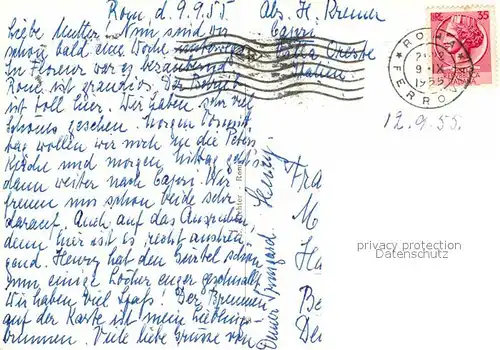 Rom, d. 9.9.55
Abs. H. Kremer
Capri
Italien
Liebe Mutter! Nun sind wir
schon bald eine Woche unterwegs.
In Florenz war es bezaubernd
Rom ist grandios. Der Betrieb
ist toll hier. Wir haben sehr viel
Schönes gesehen. Morgen Vormit-
tag wollen wir noch in die Peters
Kirche und morgen Mittag geht
dann weiter nach Capri. Wir
freuen uns schon beide sehr
darauf. Auch auf das Ausruhen,
denn hier ist es recht anstren-
gend. Henry hat den Gürtel schon
um einige Löcher enger geschnallt
Wir haben viel Spass! Der Brunnen
auf der Karte ist mein Lieblings-
brunnen. Viele liebe Grüsse von
Deiner Irmgard. Henry
LIRE 35
ROMA
9 IX
1955
FERROVIA
12.9.55.
Fra
M
Ha
Be
Deu
privacy protection
Datenschutz